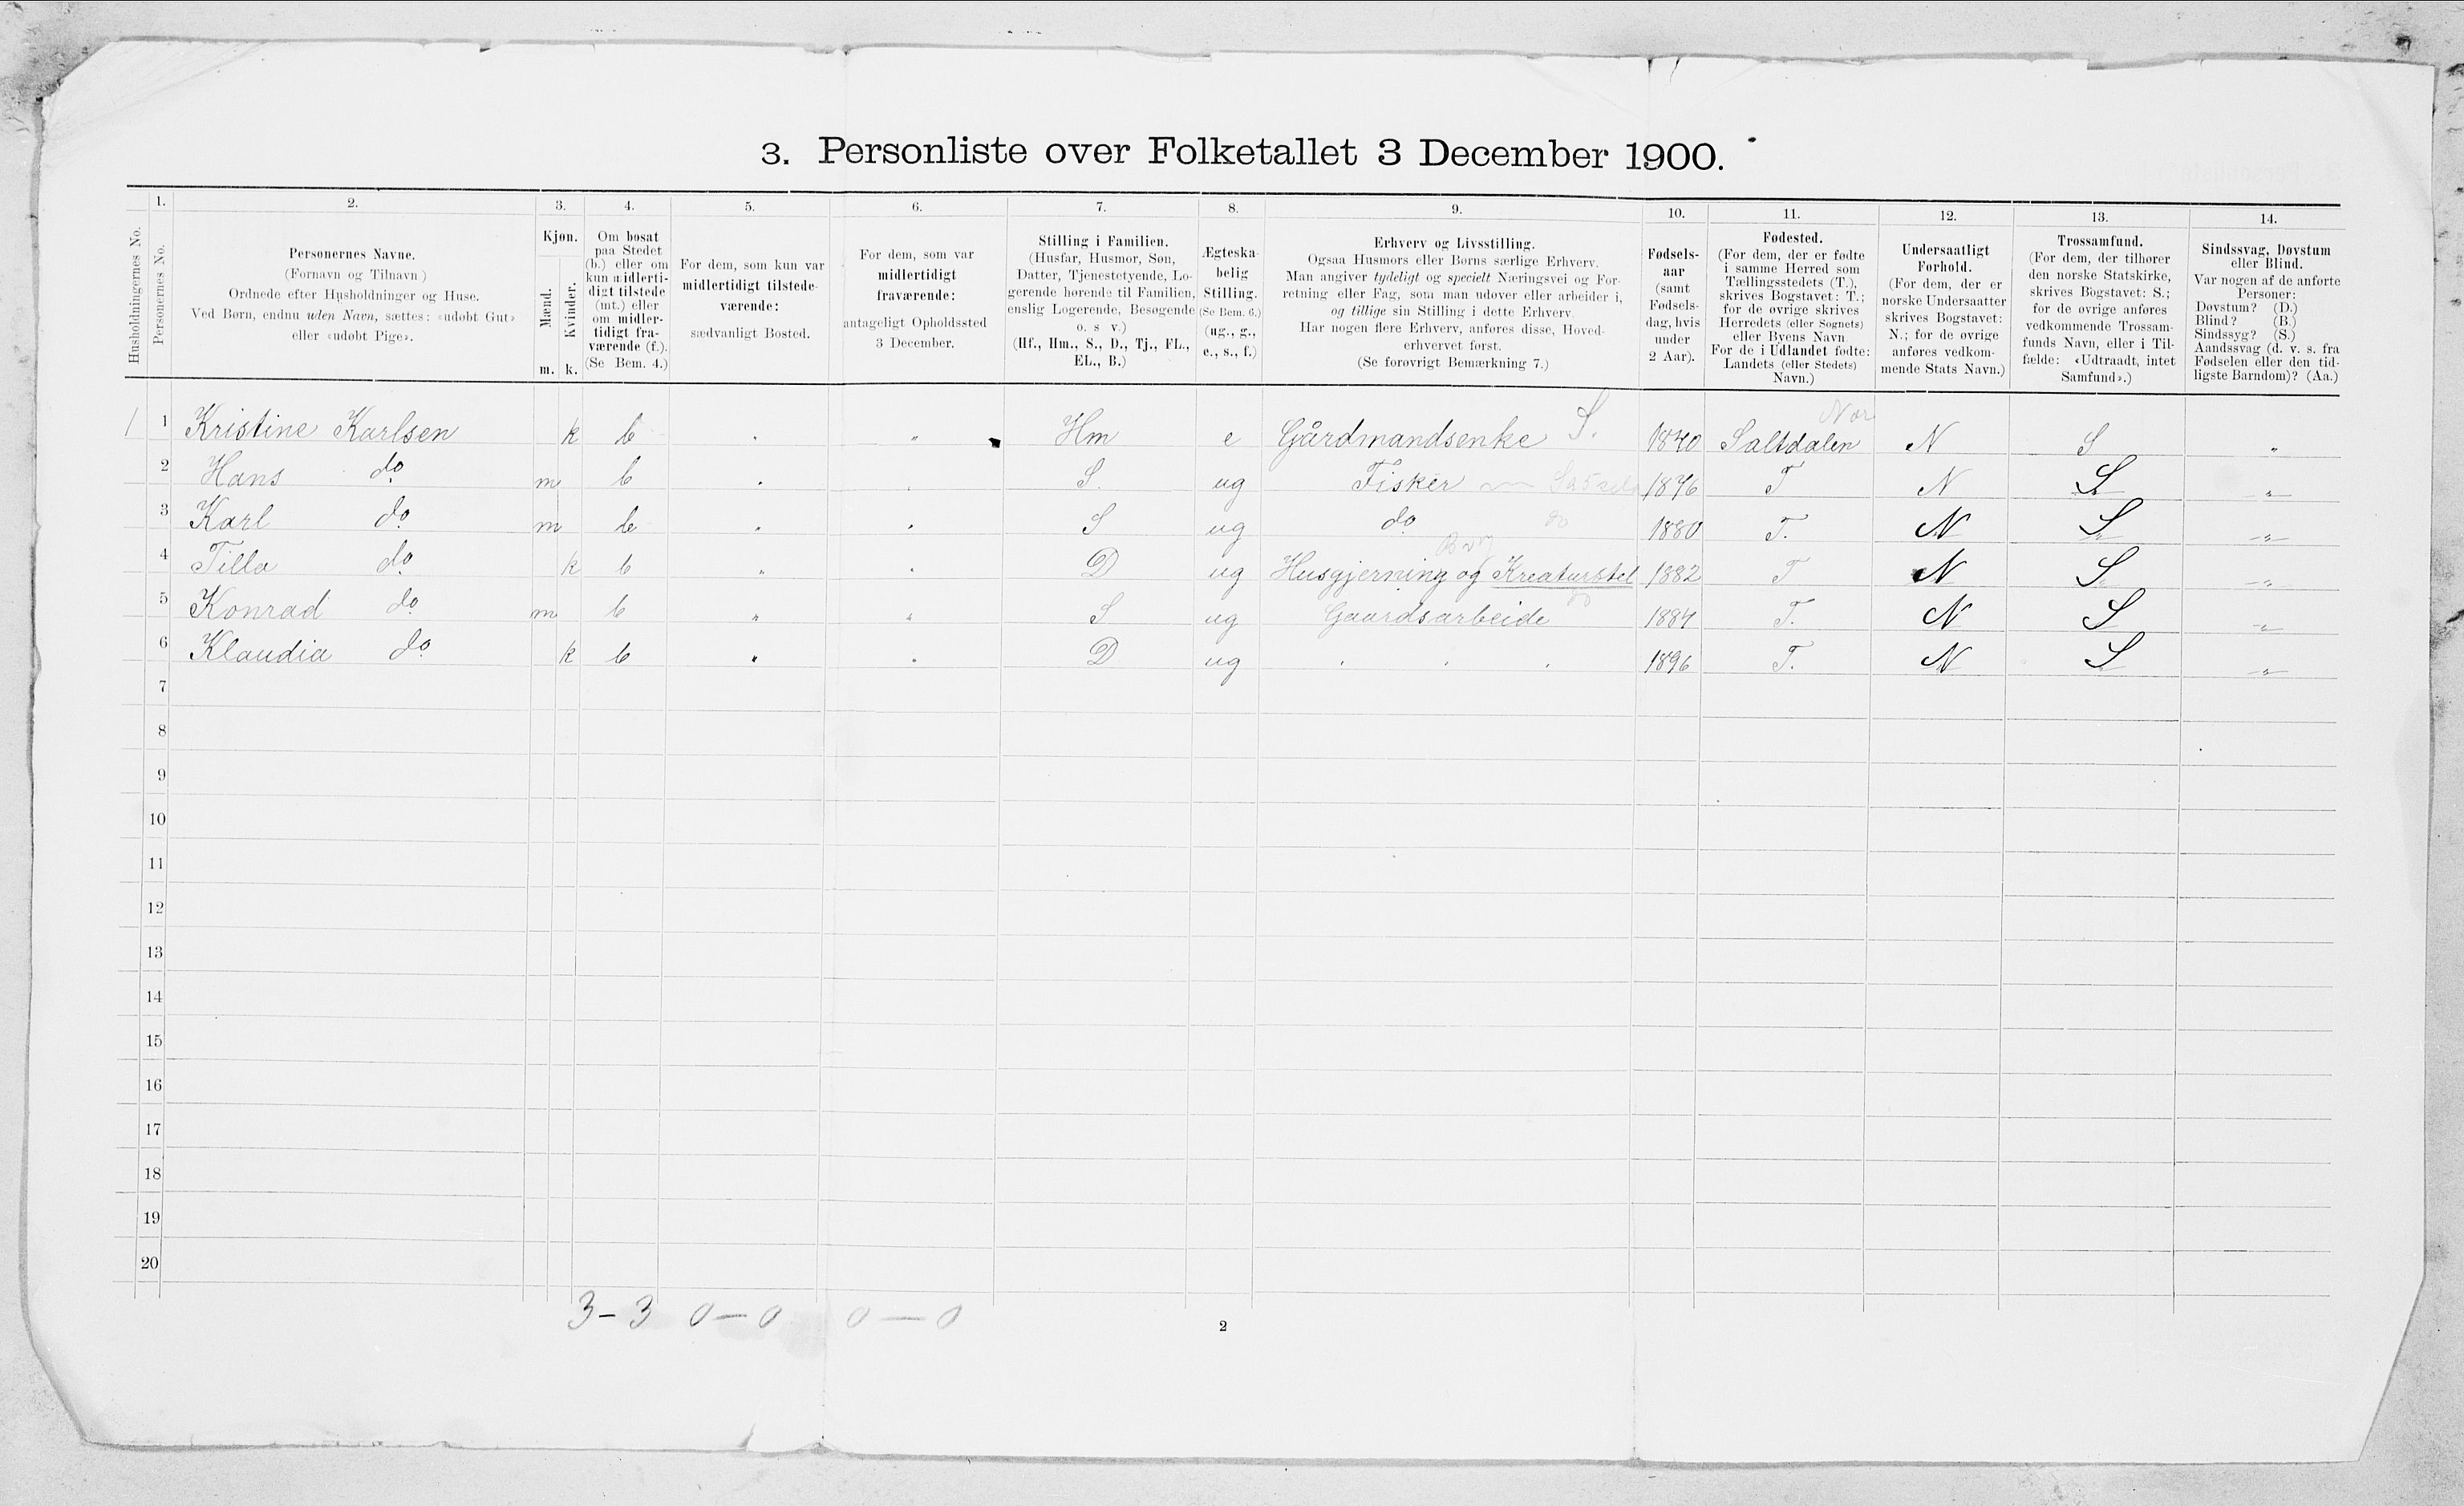 3. Personliste over Folketallet 3 December 1900.
1. 2. 3. 4. 5. 6. 7. 8. 9. 10. 11. 12. 13. 14.
Husholdningernes No.
Personernes No.
Personernes Navne.
(Fornavn og Tilnavn)
Ordnede efter Husholdninger og Huse.
Ved Børn, endnu uden Navn, sættes: «udøbt Gut»
eller «udøbt Pige».
Kjøn.
Mænd.
Kvinder.
m. k.
Om bosat
paa Stedet
(b.) eller om
kun midlerti-
digt tilstede
(mt.) eller
om midler-
tidigt fra-
værende (f.).
(Se Bem. 4.)
For dem, som kun var
midlertidigt tilstede-
værende:
sædvanligt Bosted.
For dem, som var
midlertidigt
fraværende:
antageligt Opholdssted
3 December.
Stilling i Familien.
(Husfar, Husmor, Søn,
Datter, Tjenestetyende, Lo-
gerende hørende til Familien,
enslig Logerende, Besøgende
o. s v.)
(Hf., Hm., S., D., Tj., FL.,
EL., B.)
Ægteska-
belig
Stilling.
(Se Bem. 6.)
(ug., g.,
e., s., f.)
Erhverv og Livsstilling.
Ogsaa Husmors eller Børns særlige Erhverv.
Man angiver tydeligt og specielt Næringsvei og For-
retning eller Fag, som man udøver eller arbeider i,
og tillige sin Stilling i dette Erhverv.
Har nogen flere Erhverv, anføres disse, Hoved-
erhvervet først.
(Se forøvrigt Bemærkning 7.)
Fødsels-
aar
(samt
Fødsels-
dag, hvis
under
2 Aar).
Fødested.
(For dem, der er fødte
i samme Herred som
Tællingsstedets (T.),
skrives Bogstavet: T.;
for de øvrige skrives
Herredets (eller Sognets)
eller Byens Navn
For de i Udlandet fødte:
Landets (eller Stedets)
Navn.)
Undersaatligt
Forhold.
(For dem, der er
norske Undersaatter
skrives Bogstavet:
N.; for de øvrige
anføres vedkom-
mende Stats Navn.)
Trossamfund.
(For dem, der tilhører
den norske Statskirke,
skrives Bogstavet: S.;
for de øvrige anføres
vedkommende Trossam-
funds Navn, eller i Til-
fælde: «Udtraadt, intet
Samfund».)
Sindssvag, Døvstum
eller Blind.
Var nogen af de anførte
Personer:
Døvstum? (D.)
Blind? (B.)
Sindssyg? (S.)
Aandssvag (d. v. s. fra
Fødselen eller den tid-
ligste Barndom)? (Aa.)
1 1 Kristine Karlsen k b " " Hm e Gårdmandsenke S. 1840 Saltdalen Nor N S "
2 Hans do m b " " S. ug Fisker 1876 T N S "
3 Karl do m b " " S ug do do 1880 T. N S "
4 Tilla do k b " " D ug Husgjerning og Kreaturstel 1882 T N S "
5 Konrad do m b " " S ug Gaardsarbeide do 1884 T. N S "
6 Klaudia do k b " " D ug " " " 1896 T. N S "
7
8
9
10
11
12
13
14
15
16
17
18
19
20
3-3 0-0 0-0
2